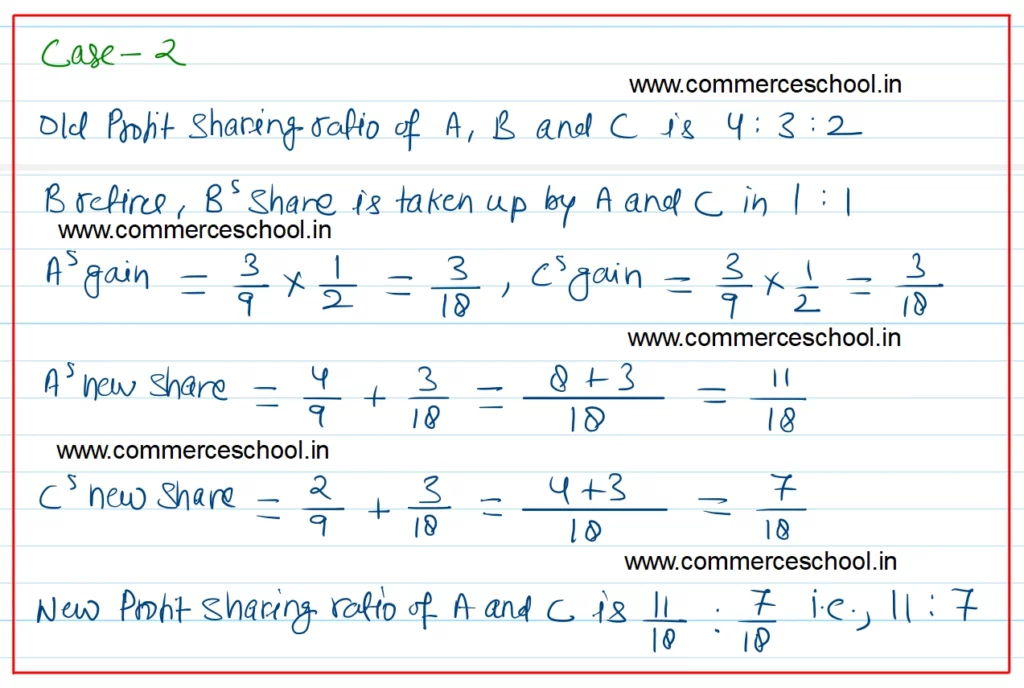 Case - 2
www.commerceschool.in
Old Profit sharing ratio of A, B and C is 4 : 3 : 2
B retire, B's share is taken up by A and C in 1 : 1
www.commerceschool.in
A's gain = 3/9 × 1/2 = 3/18, C's gain = 3/9 × 1/2 = 3/18
www.commerceschool.in
A's new share = 4/9 + 3/18 = 8+3/18 = 11/18
www.commerceschool.in
C's new share = 2/9 + 3/18 = 4+3/18 = 7/18
www.commerceschool.in
New Profit sharing ratio of A and C is 11/18 : 7/18 i.e., 11 : 7